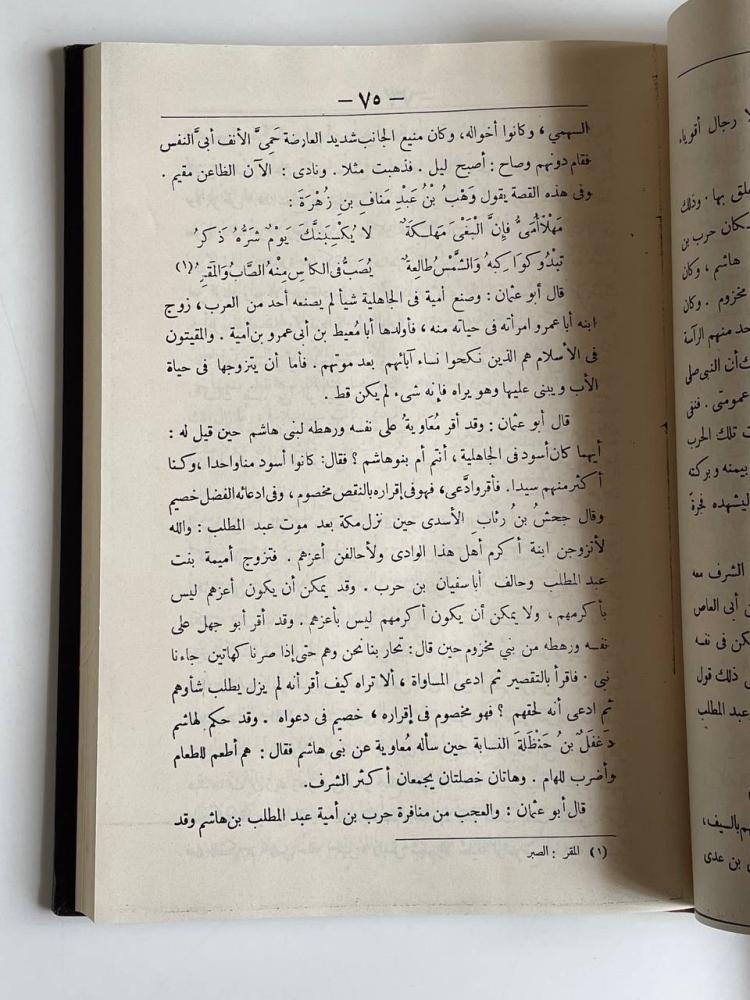 — ٧٥ —
السهمي، وكانوا أخواله، وكان منيع الجانب شديد العارضة حَمِيَّ الأنف أبىَّ النفس
فقام دونهم وصاح : أصبح ليل . فذهبت مثلا . ونادى : الآن الظاعن مقيم .
وفى هذه القصة يقول وَهْبُ بْنُ عَبْدِ مَنافِ بنِ زُهْرَةَ :
مَهْلاً أُمَىُّ فإِنَّ الْبَغْىَ مَهلِكَةٌ لا يُكْسِبَنَّكَ يَوْمٌ شَرُّهُ ذَكَرُ
تبْدُو كَوَاكِبُهُ وَالشَّمْسُ طالِعةٌ يُصَبُّ فى الكأسِ مِنْهُ الصَّابُ وَالمَقِرُ (١)
قال أبو عثمان : وصنع أمية فى الجاهلية شيأ لم يصنعه أحد من العرب، زوج
ابنه أبا عمرو امرأته فى حياته منه ، فأولدها أبا مُعيط بن أبى عمرو بن أمية . والمقيتون
فى الأسلام هم الذين نكحوا نساء آبائهم بعد موتهم . فأما أن يتزوجها فى حياة
الأب ويبنى عليها وهو يراه فإنه شىء لم يكن قط .
قال أبو عثمان : وقد أقر مُعَاوية ُ على نفسه ورهطه لبنى هاشم حين قيل له :
أيهما كان أسود فى الجاهلية ، أنتم أم بنو هاشم ؟ فقال: كانوا أسود منا واحدا ، وكنا
أكثر منهم سيدا. فأقر وادَّعى، فهو فى إقراره بالنقص مخصوم ، وفى ادعائه الفضل خصيم
وقال جحشُ بنُ رئابِ الأسدى حين نزل مكة بعد موت عبد المطلب : والله
لأتزوجن ابنة أكرم أهل هذا الوادى ولأحالفن أعزهم . فتزوج أميمة بنت
عبد المطلب وحالف أبا سفيان بن حرب . وقد يمكن أن يكون أعزهم ليس
بأكرمهم ، ولا يمكن أن يكون أكرمهم ليس بأعزهم . وقد أقر أبو جهل على
نفسه ورهطه من بنى مخزوم حين قال: تحاربنا نحن وهم حتى إذا صرنا كهاتين جاءنا
نبى . فاقرأ بالتقصير ثم ادعى المساواة ، ألا تراه كيف أقر أنه لم يزل يطلب شأوهم
ثم ادعى أنه لحقهم ؟ فهو مخصوم فى إقراره ، خصيم فى دعواه . وقد حكم لهاشم
دَغفَلُ بنُ حَنْظَلةَ النسابة حين سأله مُعاوية عن بنى هاشم فقال : هم أطعم للطعام
وأضرب للهام . وهاتان خصلتان يجمعان أكثر الشرف.
قال أبو عثمان : والعجب من منافرة حرب بن أمية عبد المطلب بن هاشم وقد
(١) المقر : الصبر
لا رجال أقوياء
ملق بها . وذلك
كان حرب بن
هاشم ، وكان
مخزوم . وكان
حد منهم الرآسة
ك أن النبى صلى
عمومتى . فنفى
ت تلك الحرب
بيمنه وبركته
ليشهده فجرة
الشرف معه
ن أبى العاص
كن فى نفسه
ى ذلك قول
عبد المطلب
هم بالسيف،
ل بن عدى